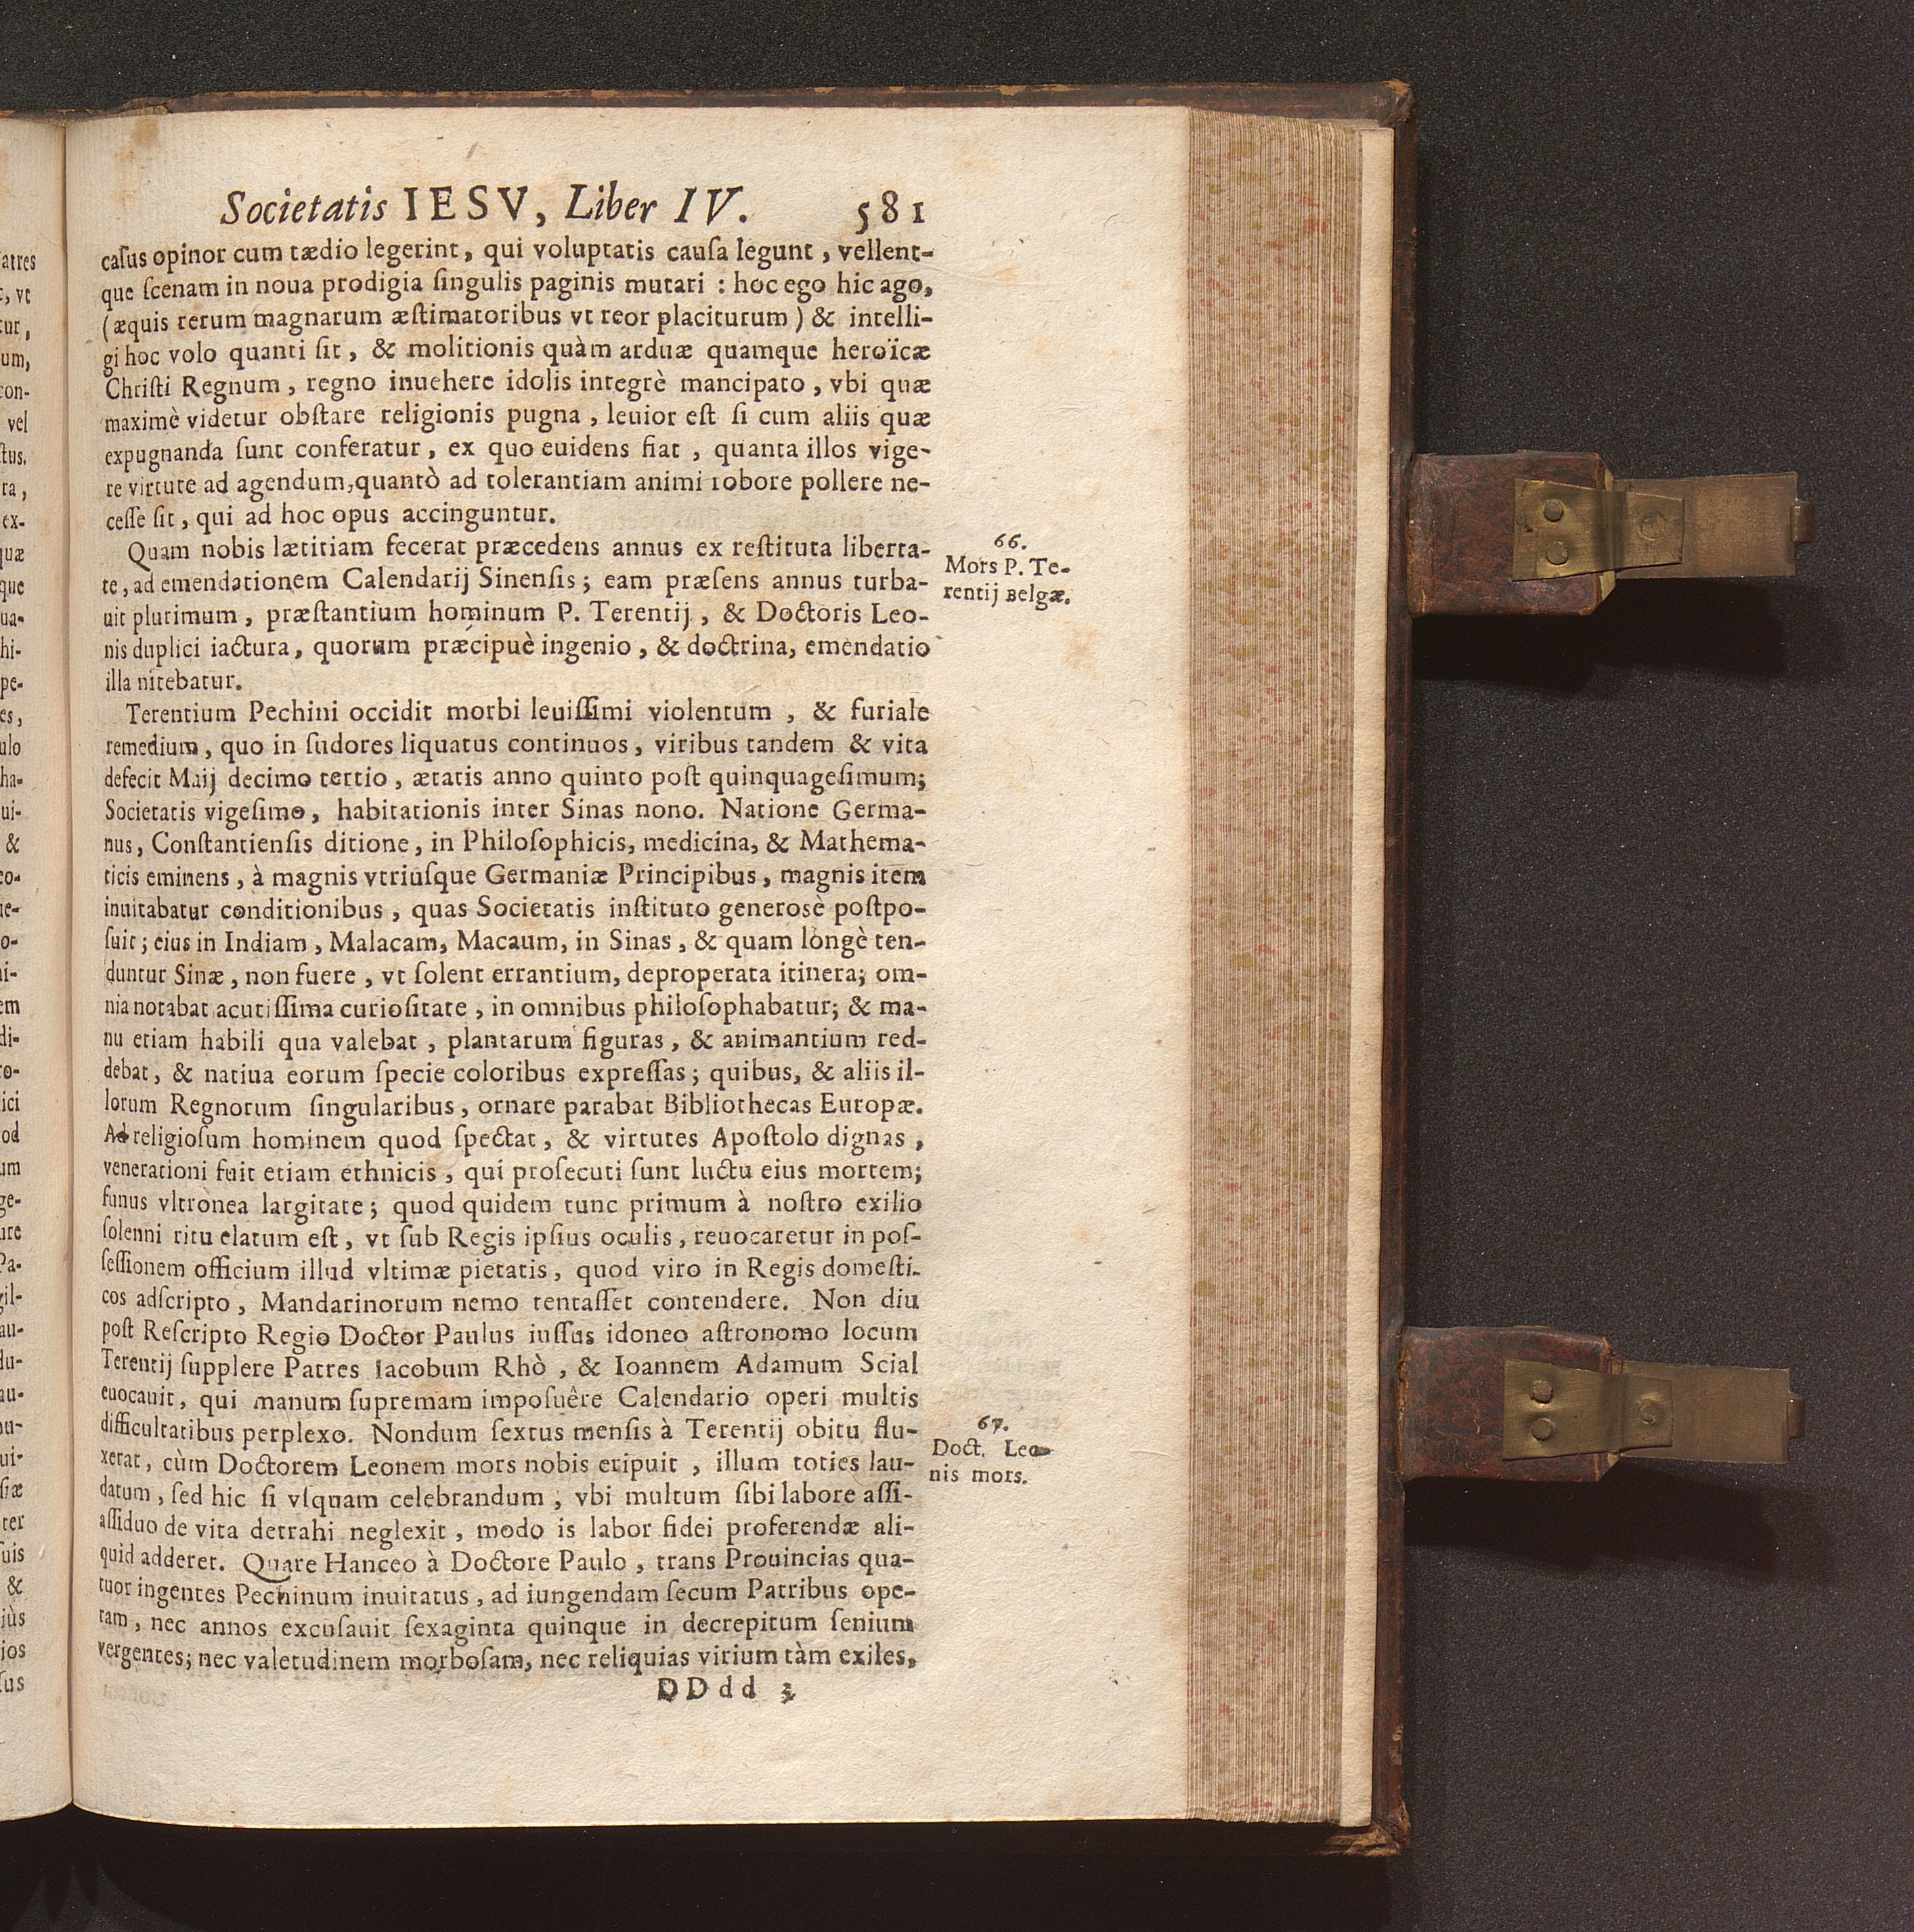 Societatis IESV, Liber IV. 581
casus opinor cum tædio legerint, qui voluptatis causa legunt, vellent-
que scenam in noua prodigia singulis paginis mutari : hoc ego hic ago,
(æquis rerum magnarum æstimatoribus vt reor placiturum) & intelli-
gi hoc volo quanti sit, & molitionis quàm arduæ quamque heroïcæ
Christi Regnum, regno inuehere idolis integrè mancipato, vbi quæ
maximè videtur obstare religionis pugna, leuior est si cum aliis quæ
expugnanda sunt conferatur, ex quo euidens fiat, quanta illos vige-
re virtute ad agendum, quantò ad tolerantiam animi robore pollere ne-
cesse sit, qui ad hoc opus accinguntur.
Quam nobis lætitiam fecerat præcedens annus ex restituta liberta-
te, ad emendationem Calendarij Sinensis; eam præsens annus turba-
uit plurimum, præstantium hominum P. Terentij, & Doctoris Leo-
nis duplici iactura, quorum præcipuè ingenio, & doctrina, emendatio
illa nitebatur.
66.
Mors P. Te-
rentij Belgæ.
Terentium Pechini occidit morbi leuissimi violentum, & furiale
remedium, quo in sudores liquatus continuos, viribus tandem & vita
defecit Maij decimo tertio, ætatis anno quinto post quinquagesimum;
Societatis vigesimo, habitationis inter Sinas nono. Natione Germa-
nus, Constantiensis ditione, in Philosophicis, medicina, & Mathema-
ticis eminens, à magnis vtriusque Germaniæ Principibus, magnis item
inuitabatur conditionibus, quas Societatis instituto generosè postpo-
suit; eius in Indiam, Malacam, Macaum, in Sinas, & quam longè ten-
duntur Sinæ, non fuere, vt solent errantium, deproperata itinera; om-
nia notabat acutissima curiositate, in omnibus philosophabatur; & ma-
nu etiam habili qua valebat, plantarum figuras, & animantium red-
debat, & natiua eorum specie coloribus expressas; quibus, & aliis il-
lorum Regnorum singularibus, ornare parabat Bibliothecas Europæ.
Ad religiosum hominem quod spectat, & virtutes Apostolo dignas,
venerationi fuit etiam ethnicis, qui prosecuti sunt luctu eius mortem;
funus vltronea largitate; quod quidem tunc primum à nostro exilio
solenni ritu elatum est, vt sub Regis ipsius oculis, reuocaretur in pos-
sessionem officium illud vltimæ pietatis, quod viro in Regis domesti-
cos adscripto, Mandarinorum nemo tentasset contendere. Non diu
post Rescripto Regio Doctor Paulus iussus idoneo astronomo locum
Terentij supplere Patres Iacobum Rhò, & Ioannem Adamum Scial
euocauit, qui manum supremam imposuêre Calendario operi multis
difficultatibus perplexo. Nondum sextus mensis à Terentij obitu flu-
xerat, cùm Doctorem Leonem mors nobis eripuit, illum toties lau-
datum, sed hic si vsquam celebrandum, vbi multum sibi labore assi-
assiduo de vita detrahi neglexit, modo is labor fidei proferendæ ali-
quid adderet. Quare Hanceo à Doctore Paulo, trans Prouincias qua-
tuor ingentes Pechinum inuitatus, ad iungendam secum Patribus ope-
ram, nec annos excusauit sexaginta quinque in decrepitum senium
vergentes; nec valetudinem morbosam, nec reliquias virium tàm exiles,
67.
Doct. Leo-
nis mors.
DDdd 3
atres
, vt
tur,
um,
con-
vel
ctus.
ra,
ex-
quæ
que
ua-
hi-
pe-
es,
ulo
ha-
ui-
&
co-
ne-
o-
ni-
em
di-
ro-
ici
od
um
ge-
ure
Pa-
gil-
au-
du-
au-
nu-
ui-
siæ
ter
suis
&
iùs
ios
sus